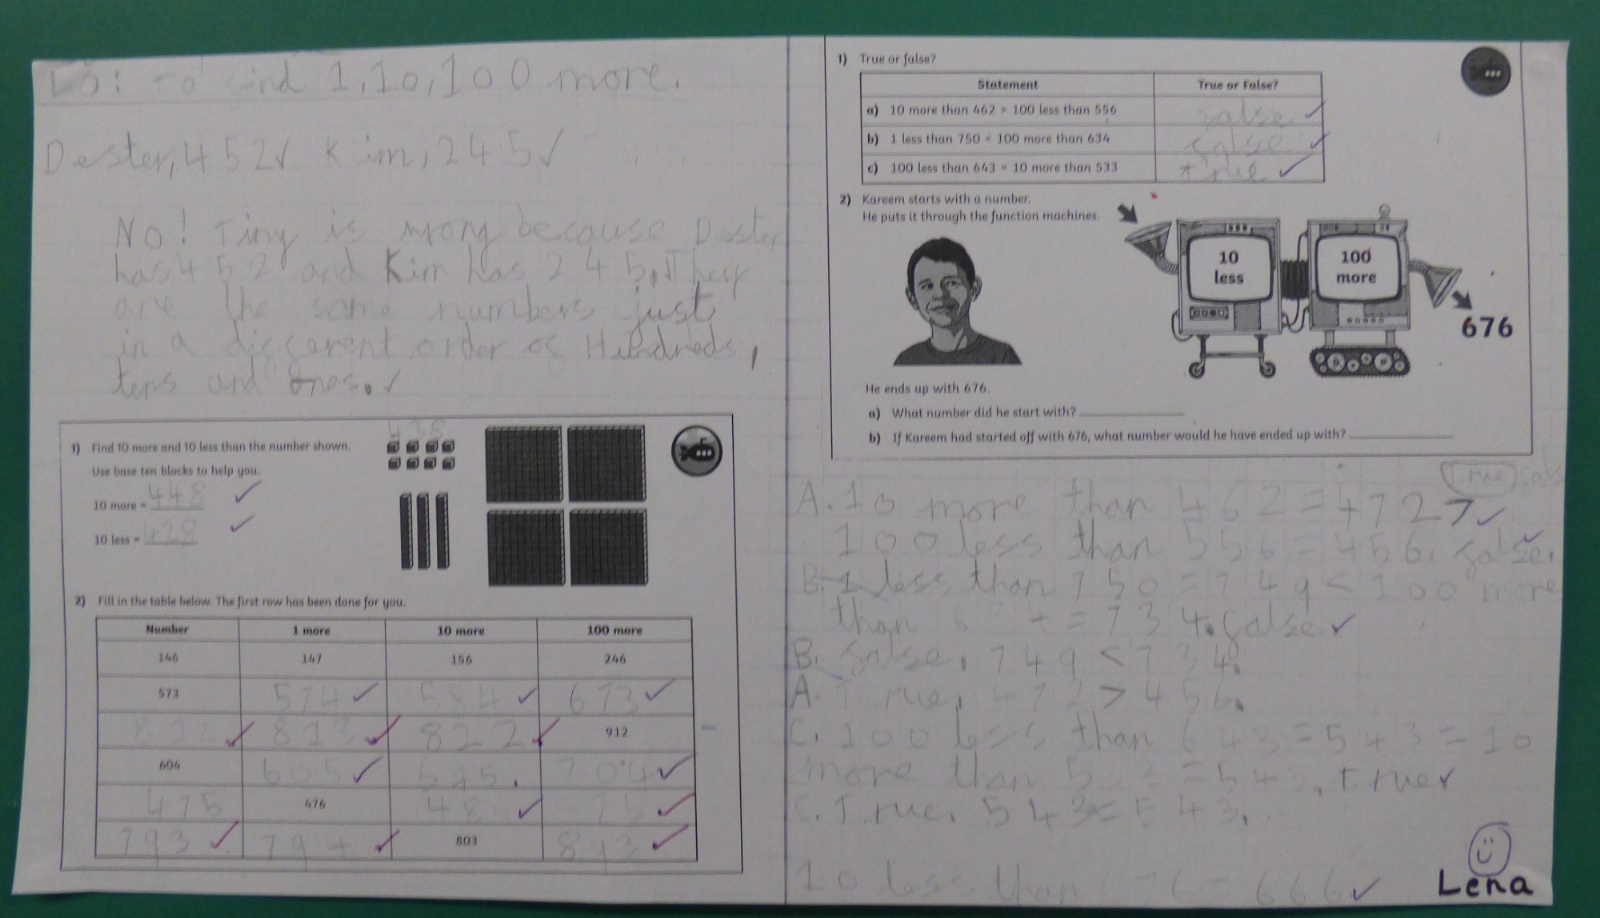 LO: to find 1,10,100 more.
Dexter,452✓ Kim,245✓
No! Tiny is wrong because Dexter
has 452 and Kim has 245. They
are the same numbers just
in a different order of Hundreds,
tens and ones. ✓
1) Find 10 more and 10 less than the number shown.
438
Use base ten blocks to help you.
10 more = 448 ✓
10 less = 428 ✓
2) Fill in the table below. The first row has been done for you.
Number 1 more 10 more 100 more
146 147 156 246
573 574 ✓ 584 ✓ 673 ✓
812 ✓ 813 ✓ 822 ✓ 912
604 605 ✓ 704 ✓
475 476 ✓ ✓
793 ✓ 794 ✓ 803 893 ✓
1) True or false?
Statement True or False?
a) 10 more than 462 > 100 less than 556 false ✓
b) 1 less than 750 < 100 more than 634 false ✓
c) 100 less than 643 = 10 more than 533 true ✓
2) Kareem starts with a number.
He puts it through the function machines.
10
less
100
more
676
He ends up with 676.
a) What number did he start with?
b) If Kareem had started off with 676, what number would he have ended up with?
True
A. 10 more than 462 = 472 > ✓
100 less than 556 = 456. false.
B. 1 less than 750 = 749 < 100 more
than = 734. false ✓
B. false. 749 < 734.
A. True. 472 > 456.
C. 100 less than 643 = 543 = 10
more than True ✓
C. True. 543 = 543.
10 less than 676 = 666 ✓
Lena